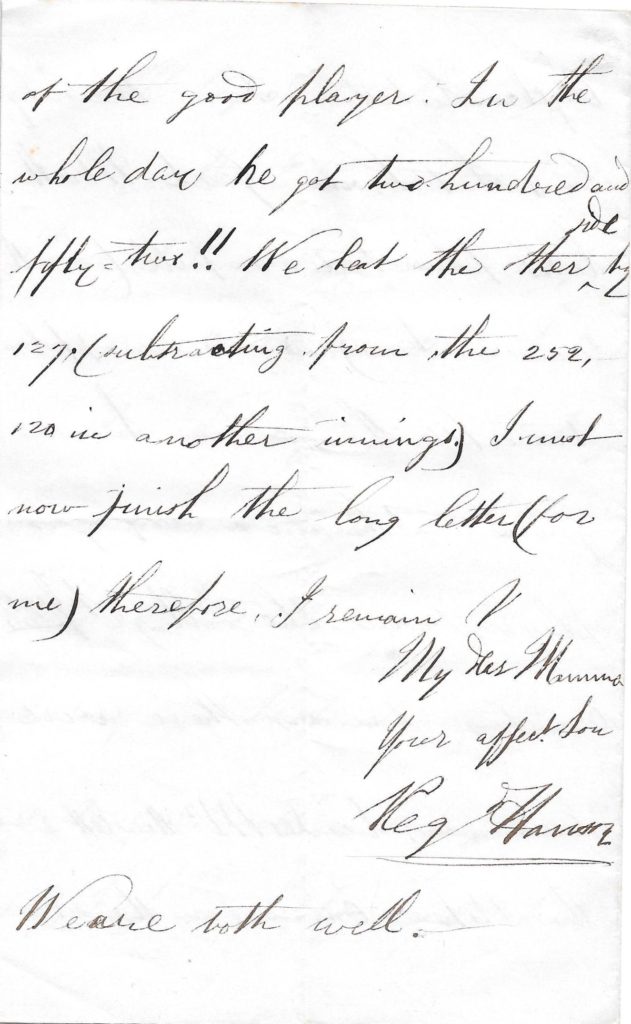 of the good player. In the
whole day he got two hundred and
fifty-two!! We beat the other side by
127. (subtracting from the 252,
120 in another innings.) I must
now finish the long letter (for
me) therefore, I remain
My dear Mamma
Your affect. Son
Reg Hanson
We are both well.